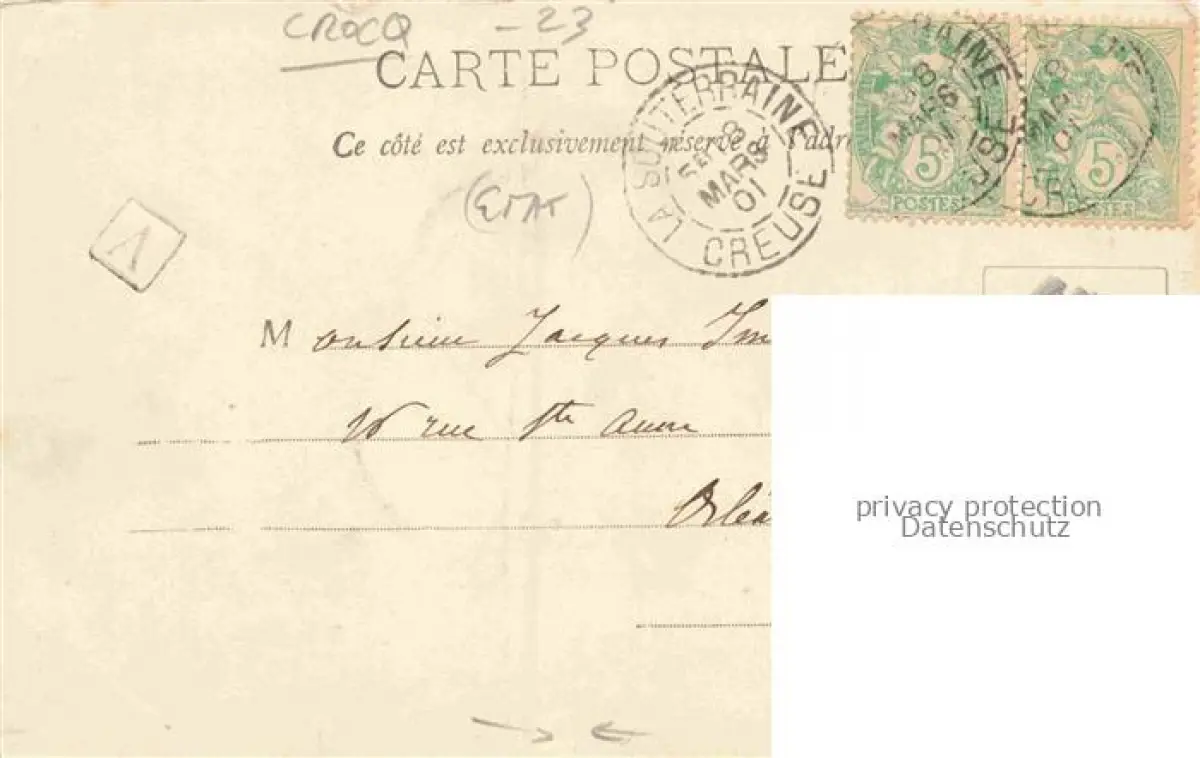 CROCQ - 23
CARTE POSTALE
Ce côté est exclusivement réservé à l'adre
(ETAT)
LA SOUTERRAINE
8
MARS
01
CREUSE
RAINE
8
MARS
01
5
POSTES
8
MAR
01
5
POSTES
Monsieur Jacques Im
16 rue Ste Anne
Orléa
privacy protection
Datenschutz